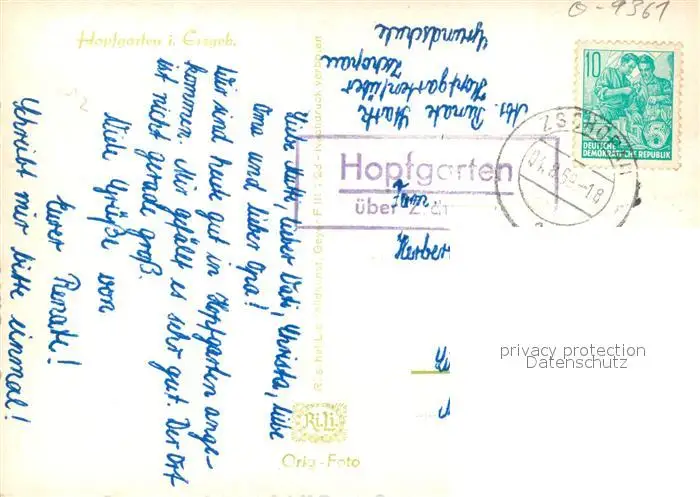 Hopfgarten i. Erzgeb.
O-9361
Liebe Mutti, lieber Vati, Christa, liebe
Oma und lieber Opa!
Wir sind heute gut in Hopfgarten ange-
kommen. Mir gefällt es sehr gut. Der Ort
ist nicht gerade groß.
Viele Grüße von
Eurer Renate!
Schreibt mir bitte einmal!
Abs. Renate
Hopfgarten/über
Zschopau
Grundschule
10
DEUTSCHE
DEMOKRATISCHE REPUBLIK
ZSCHOPAU
01.8.59-18
Hopfgarten
über
Nachdruck verboten
Ri.Li.
Orig-Foto
privacy protection
Datenschutz